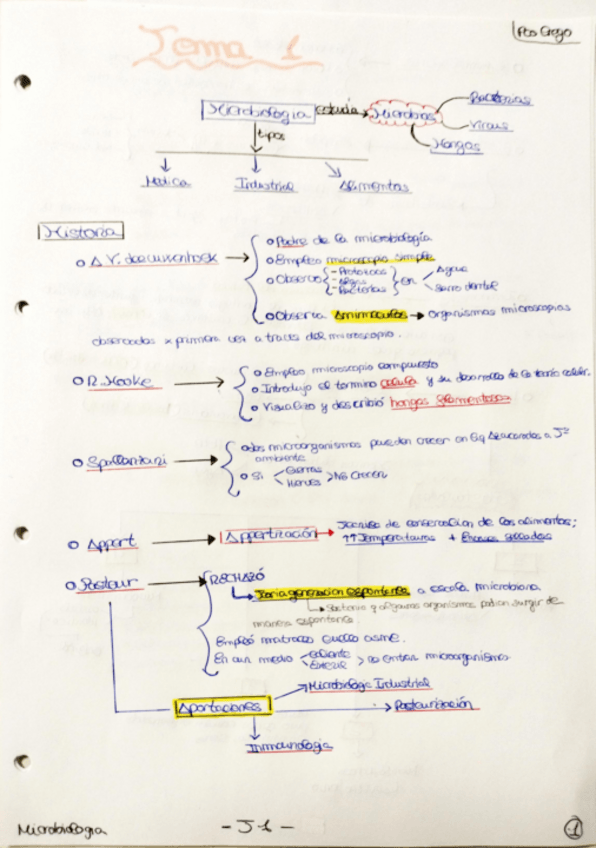 Tema 1
Microbiología estudia Microbios
Bacterias
Virus
Hongos
tipos
Médica Industrial Alimentos
Historia
A V. Leeuwenhoek
Padre de la microbiología
Empleó microscopio simple
Observó - Protozoos - Algas - Bacterias en Agua
Sarro dental
Observa Animáculos → organismos microscopios
observados x primera vez a través del microscopio.
R. Hooke
Empleó microscopio compuesto
Introdujo el termino célula y su desarrollo de la teoría celular.
Visualizó y describió hongos filamentosos
Spallanzani
Los microorganismos pueden crecer en liq azucarados a Tª
ambiente
Si Cierras
Hierves > No Crecen
Appert → Appertización → Técnica de conservación de los alimentos;
↑↑ Temperaturas + Envases sellados
Pasteur
RECHAZÓ
Teoria generacion espontanea a escala microbiana
Bacterias y algunos organismos podian surgir de
manera espontanea.
Empleó matraces cuello cisne.
En un medio caliente
Estéril > no entran microorganismos
Aportaciones
Microbiología Industrial
Pasteurización
Inmunología
Microbiología - T1 - 1